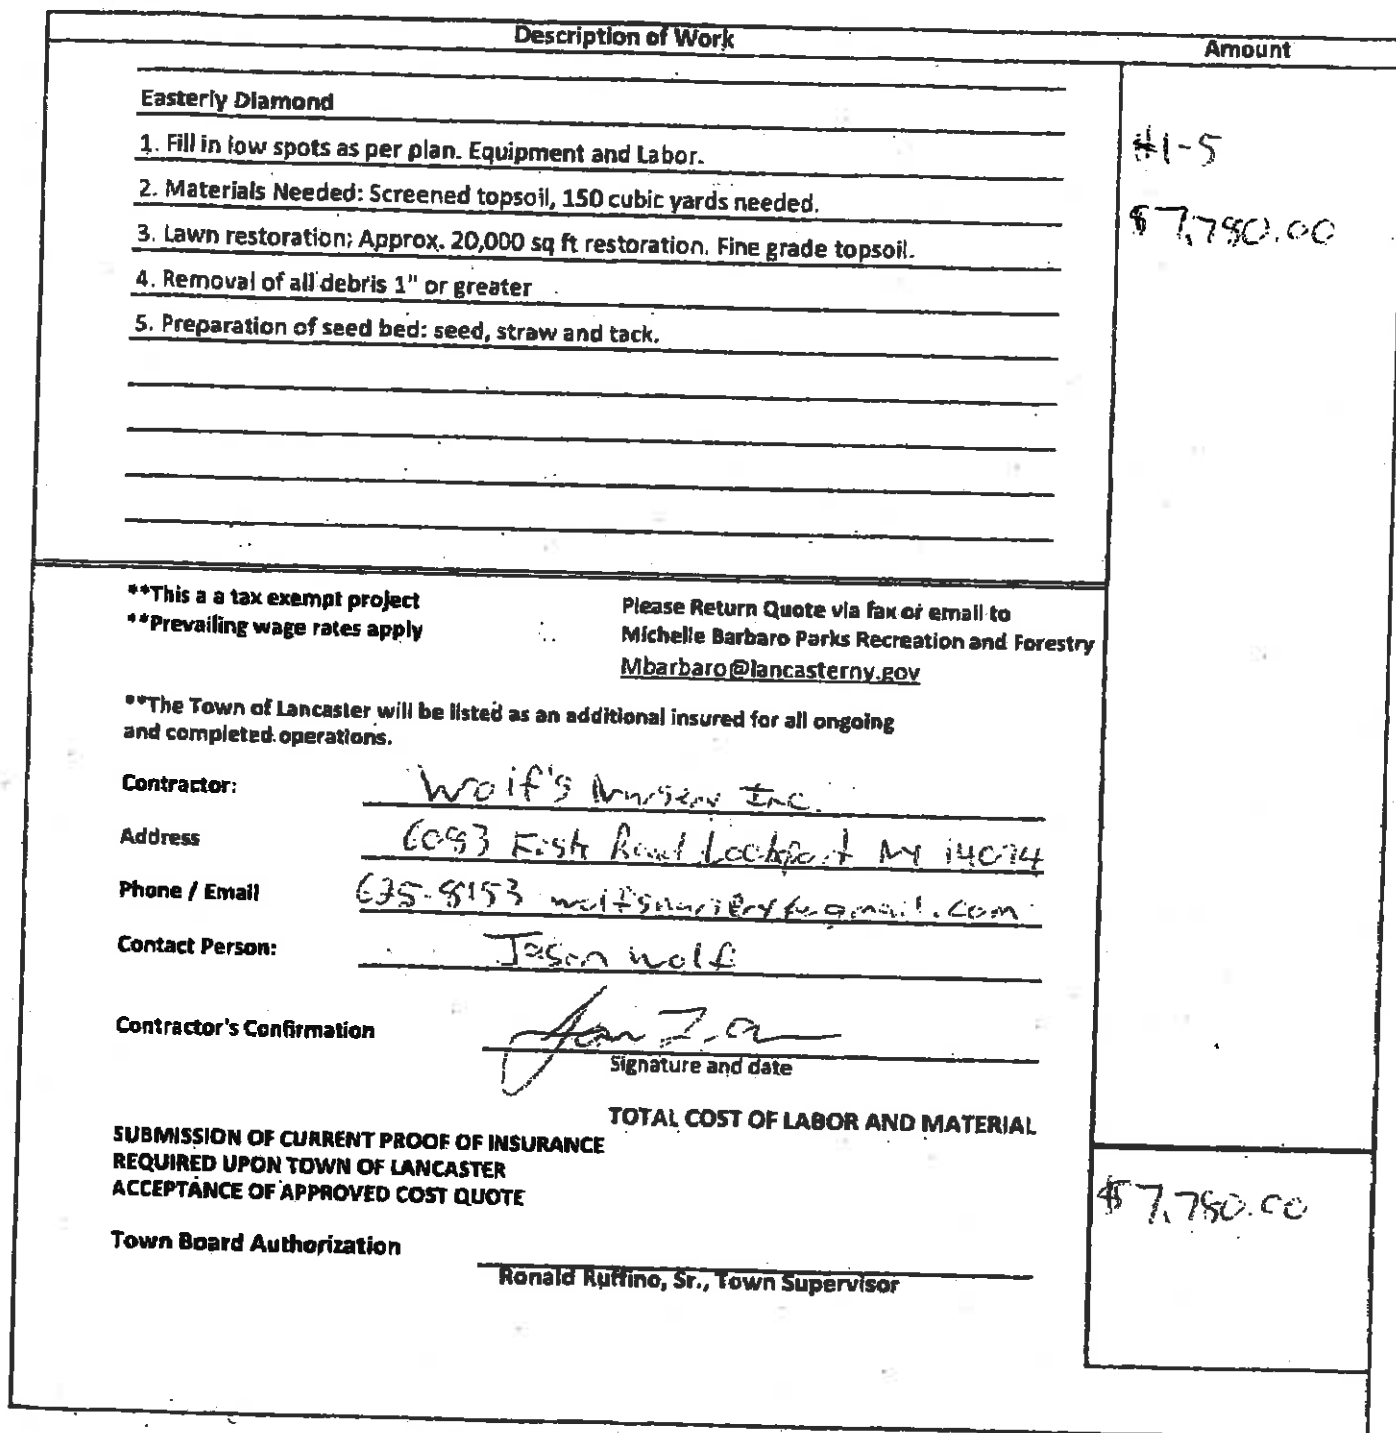 Description of Work
Amount
Easterly Diamond
1. Fill in low spots as per plan. Equipment and Labor.
#1-5
2. Materials Needed: Screened topsoil, 150 cubic yards needed.
$7,780.00
3. Lawn restoration: Approx. 20,000 sq ft restoration. Fine grade topsoil.
4. Removal of all debris 1" or greater
5. Preparation of seed bed: seed, straw and tack.
**This a a tax exempt project
**Prevailing wage rates apply
Please Return Quote via fax or email to
Michelle Barbaro Parks Recreation and Forestry
Mbarbaro@lancasterny.gov
**The Town of Lancaster will be listed as an additional insured for all ongoing
and completed operations.
Contractor: Wolf's Nursery Inc.
Address Road Lockport NY
Phone / Email
Contact Person: Jason Wolf
Contractor's Confirmation
Signature and date
TOTAL COST OF LABOR AND MATERIAL
SUBMISSION OF CURRENT PROOF OF INSURANCE
REQUIRED UPON TOWN OF LANCASTER
ACCEPTANCE OF APPROVED COST QUOTE
$7,780.00
Town Board Authorization
Ronald Ruffino, Sr., Town Supervisor